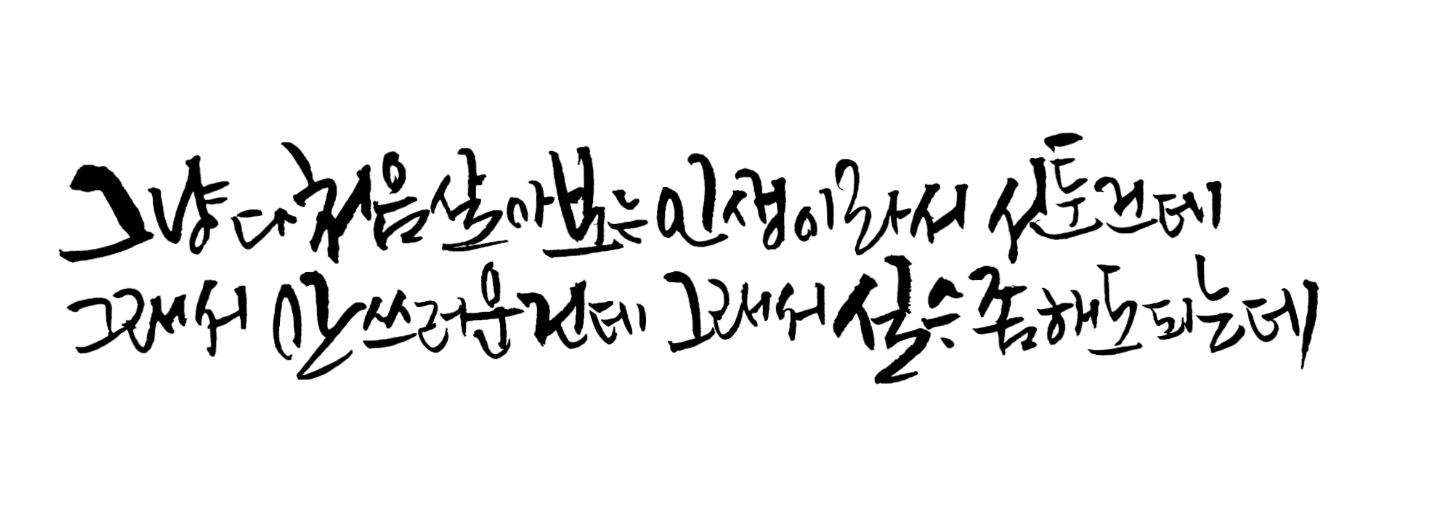 그냥 다 처음 살아보는 인생이라서 서툰건데
그래서 안쓰러운건데 그래서 실수 좀 해도 되는데